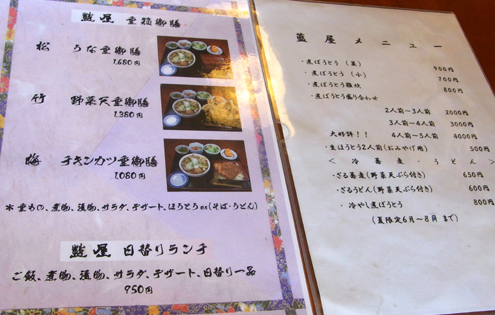 重箱御膳
松 うな重御膳
1,680円
竹 野菜天重御膳
1,380円
梅 チキンカツ重御膳
1,080円
＊重もの、煮物、漬物、サラダ、デザート、ほうとうor(そば・うどん)
日替りランチ
ご飯、煮物、漬物、サラダ、デザート、日替り一品
950円
藍屋 メニュー
・煮ぼうとう (並) 900円
・煮ぼうとう (小) 700円
・煮ぼうとう雑炊 800円
・煮ぼうとう盛り合わせ
2人前〜3人前 2000円
3人前〜4人前 3000円
大好評！！ 4人前〜5人前 4000円
・生ほうとう2人前(おみやげ用) 500円
＜ 冷 蕎麦 ・ うどん ＞
・ざる蕎麦(野菜天ぷら付き) 650円
・ざるうどん(野菜天ぷら付き) 600円
・冷やし煮ぼうとう 800円
(夏限定6月〜8月 まで)